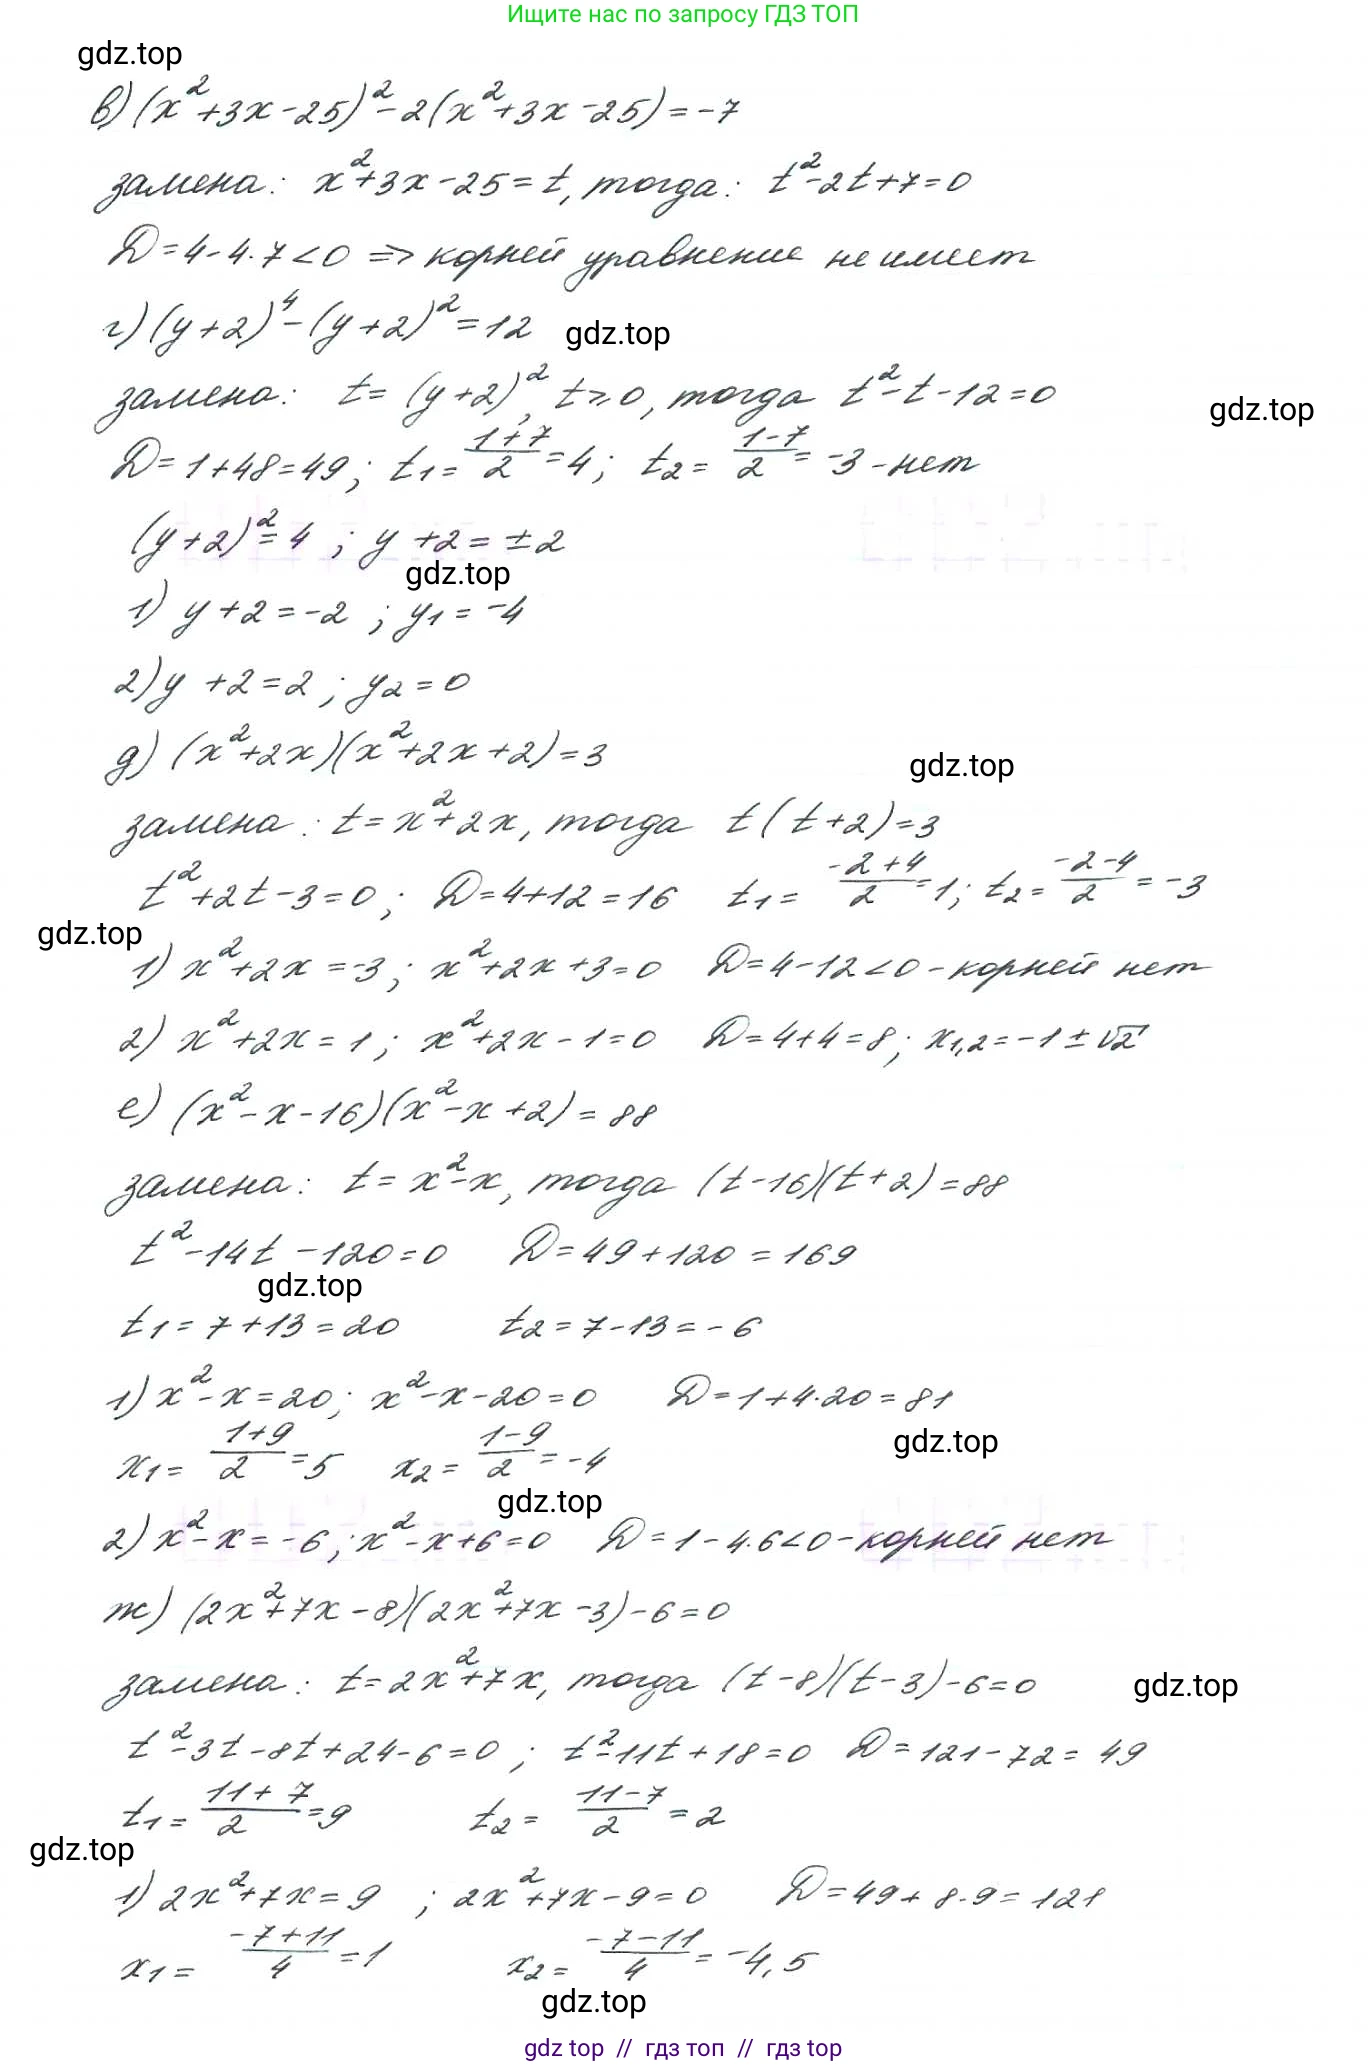 Ищите нас по запросу ГДЗ ТОП
gdz.top
в) (x²+3x-25)²-2(x²+3x-25)=-7
замена: x²+3x-25=t, тогда: t²-2t+7=0
D=4-4·7<0 => корней уравнение не имеет
г) (y+2)⁴-(y+2)²=12
gdz.top
замена: t=(y+2)², t≥0, тогда t²-t-12=0
gdz.top
D=1+48=49; t₁=(1+7)/2=4; t₂=(1-7)/2=-3-нет
(y+2)²=4; y+2=±2
gdz.top
1) y+2=-2; y₁=-4
2) y+2=2; y₂=0
д) (x²+2x)(x²+2x+2)=3
gdz.top
замена: t=x²+2x, тогда t(t+2)=3
t²+2t-3=0; D=4+12=16 t₁=(-2+4)/2=1; t₂=(-2-4)/2=-3
gdz.top
1) x²+2x=-3; x²+2x+3=0 D=4-12<0-корней нет
2) x²+2x=1; x²+2x-1=0 D=4+4=8; x₁,₂=-1±√2
е) (x²-x-16)(x²-x+2)=88
замена: t=x²-x, тогда (t-16)(t+2)=88
t²-14t-120=0 D=49+120=169
gdz.top
t₁=7+13=20 t₂=7-13=-6
1) x²-x=20; x²-x-20=0 D=1+4·20=81
gdz.top
x₁=(1+9)/2=5 x₂=(1-9)/2=-4
gdz.top
2) x²-x=-6; x²-x+6=0 D=1-4·6<0-корней нет
ж) (2x²+7x-8)(2x²+7x-3)-6=0
замена: t=2x²+7x, тогда (t-8)(t-3)-6=0
gdz.top
t²-3t-8t+24-6=0; t²-11t+18=0 D=121-72=49
t₁=(11+7)/2=9 t₂=(11-7)/2=2
gdz.top
1) 2x²+7x=9; 2x²+7x-9=0 D=49+8·9=121
x₁=(-7+11)/4=1 x₂=(-7-11)/4=-4,5
gdz.top
gdz top // гдз топ // гдз top